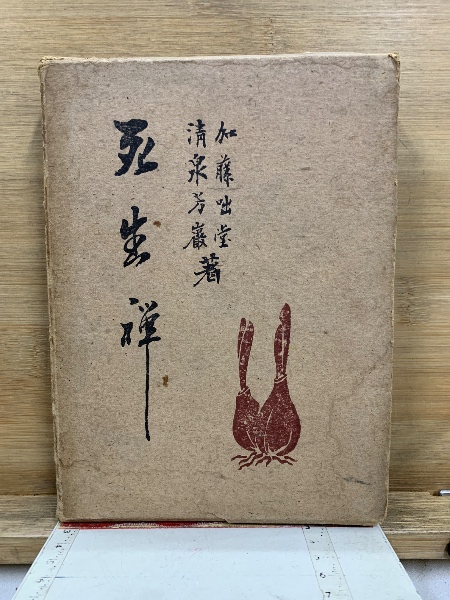 加藤咄堂
清泉芳巖著
死生禪